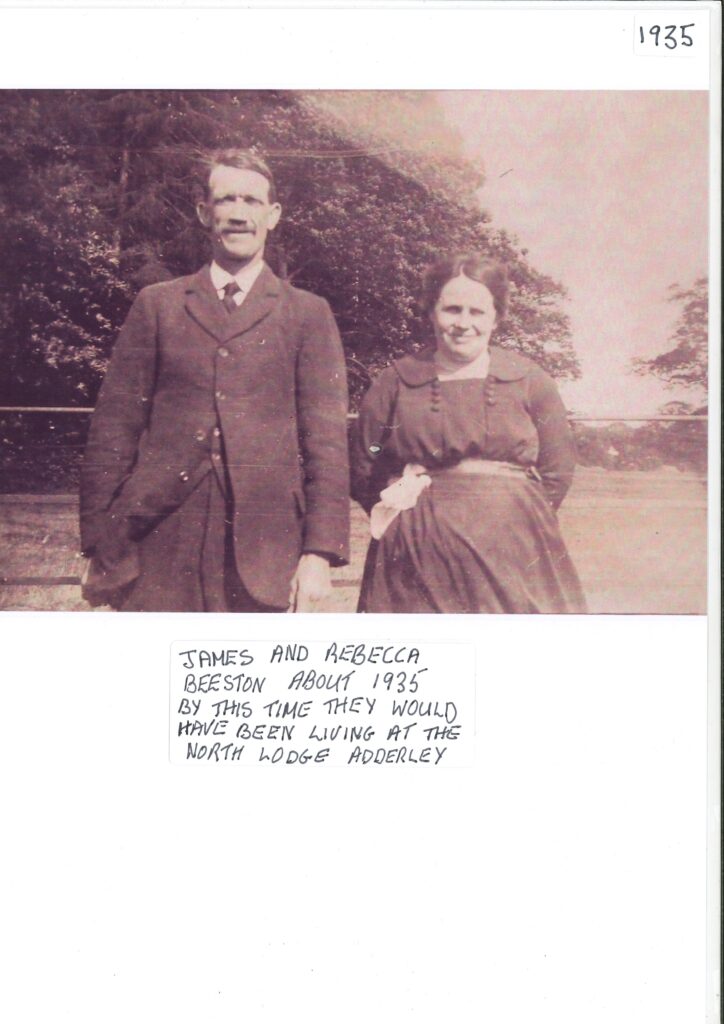 1935
JAMES AND REBECCA
BEESTON ABOUT 1935
BY THIS TIME THEY WOULD
HAVE BEEN LIVING AT THE
NORTH LODGE ADDERLEY